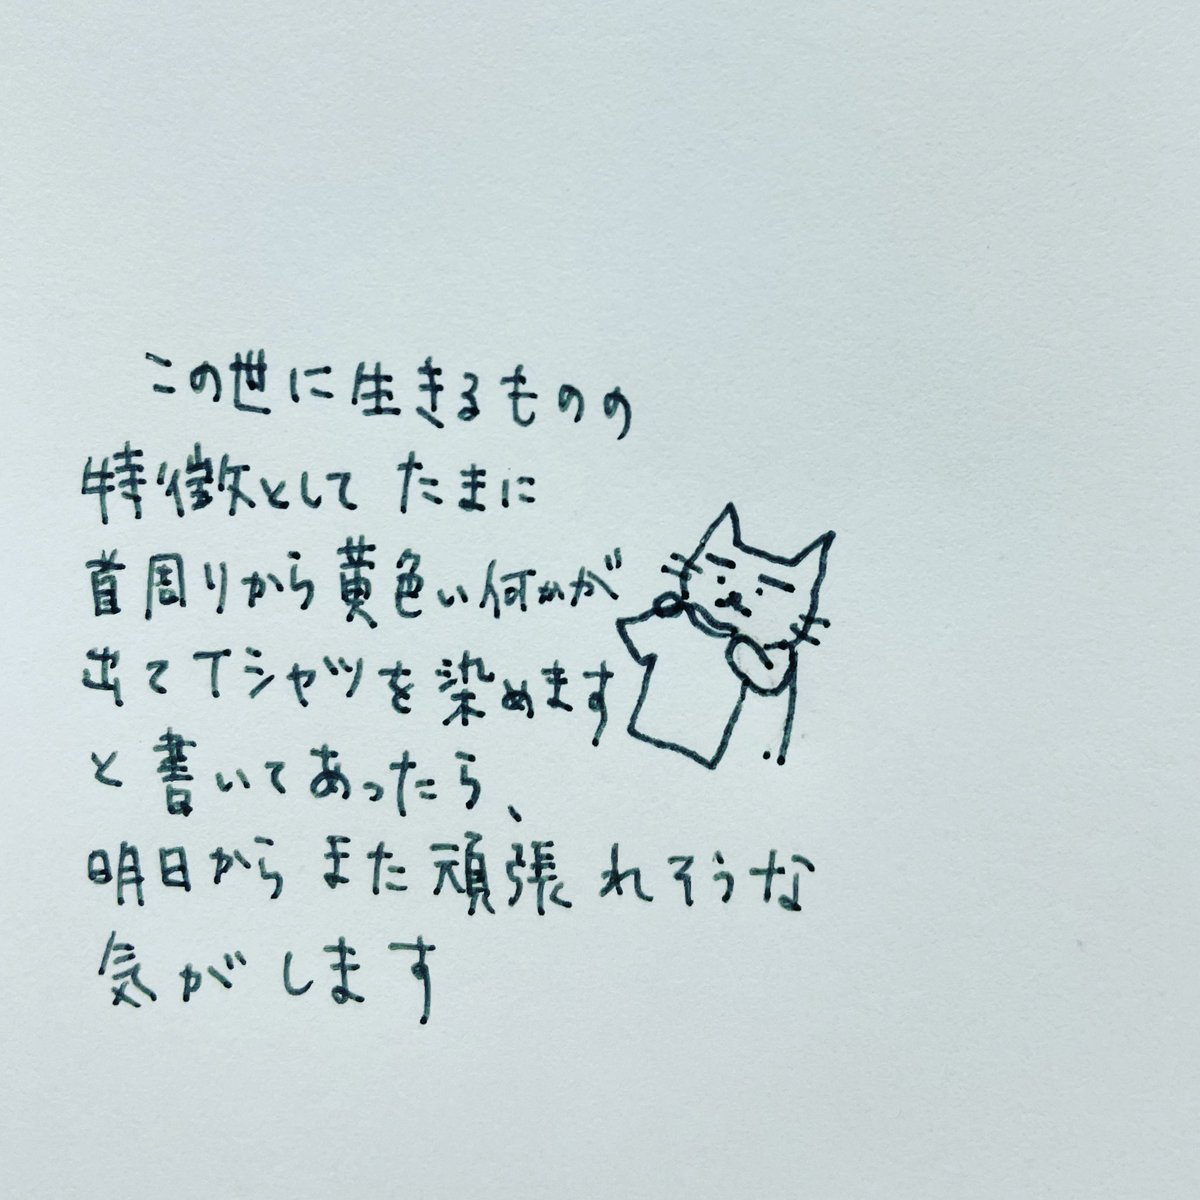 この世に生きるものの
特徴として たまに
首周りから黄色い何かが
出てTシャツを染めます
と書いてあったら、
明日からまた頑張れそうな
気がします